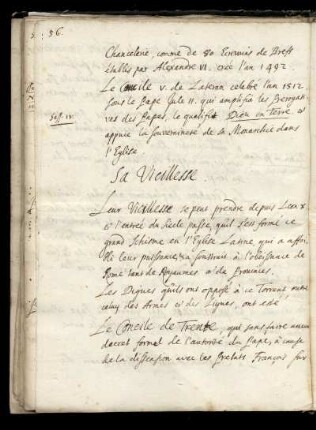 56.
Chancelerie, comme de 80 Escrivains de Brefs
établis par Alexandre VI. créé l'an 1492
Le Concile V. de Lateran celebré l'an 1512
sous le Pape Jule II. qui amplifia les Prerogati-
ves des Papes, le qualifia Dieu en Terre et
appuie la souveraineté de sa Monarchie dans
l'Eglise
Sa Vieillesse
Leur Vieillesse se peut prendre depuis Leon X
et l'entrée du siecle passé, qu'il s'est formé ce
grand schisme en l'Eglise Latine, qui a affoi-
bli leur puissance, en soustrait à l'obeissance de
Rome tant de Royaumes et de Provinces.
Les Digues qu'ils ont opposé à ce Torrent outre
celuy des Armes et des Ligues, ont esté
Le Concile de Trente, qui sans faire aucun
decret formel de l'autorité du Pape, à cause
de la dissension avec les Prelats François sur